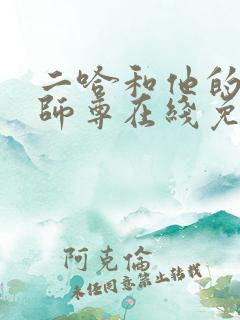 二哈和他的
師尊在綫免
阿克倫
未经同意禁止转载